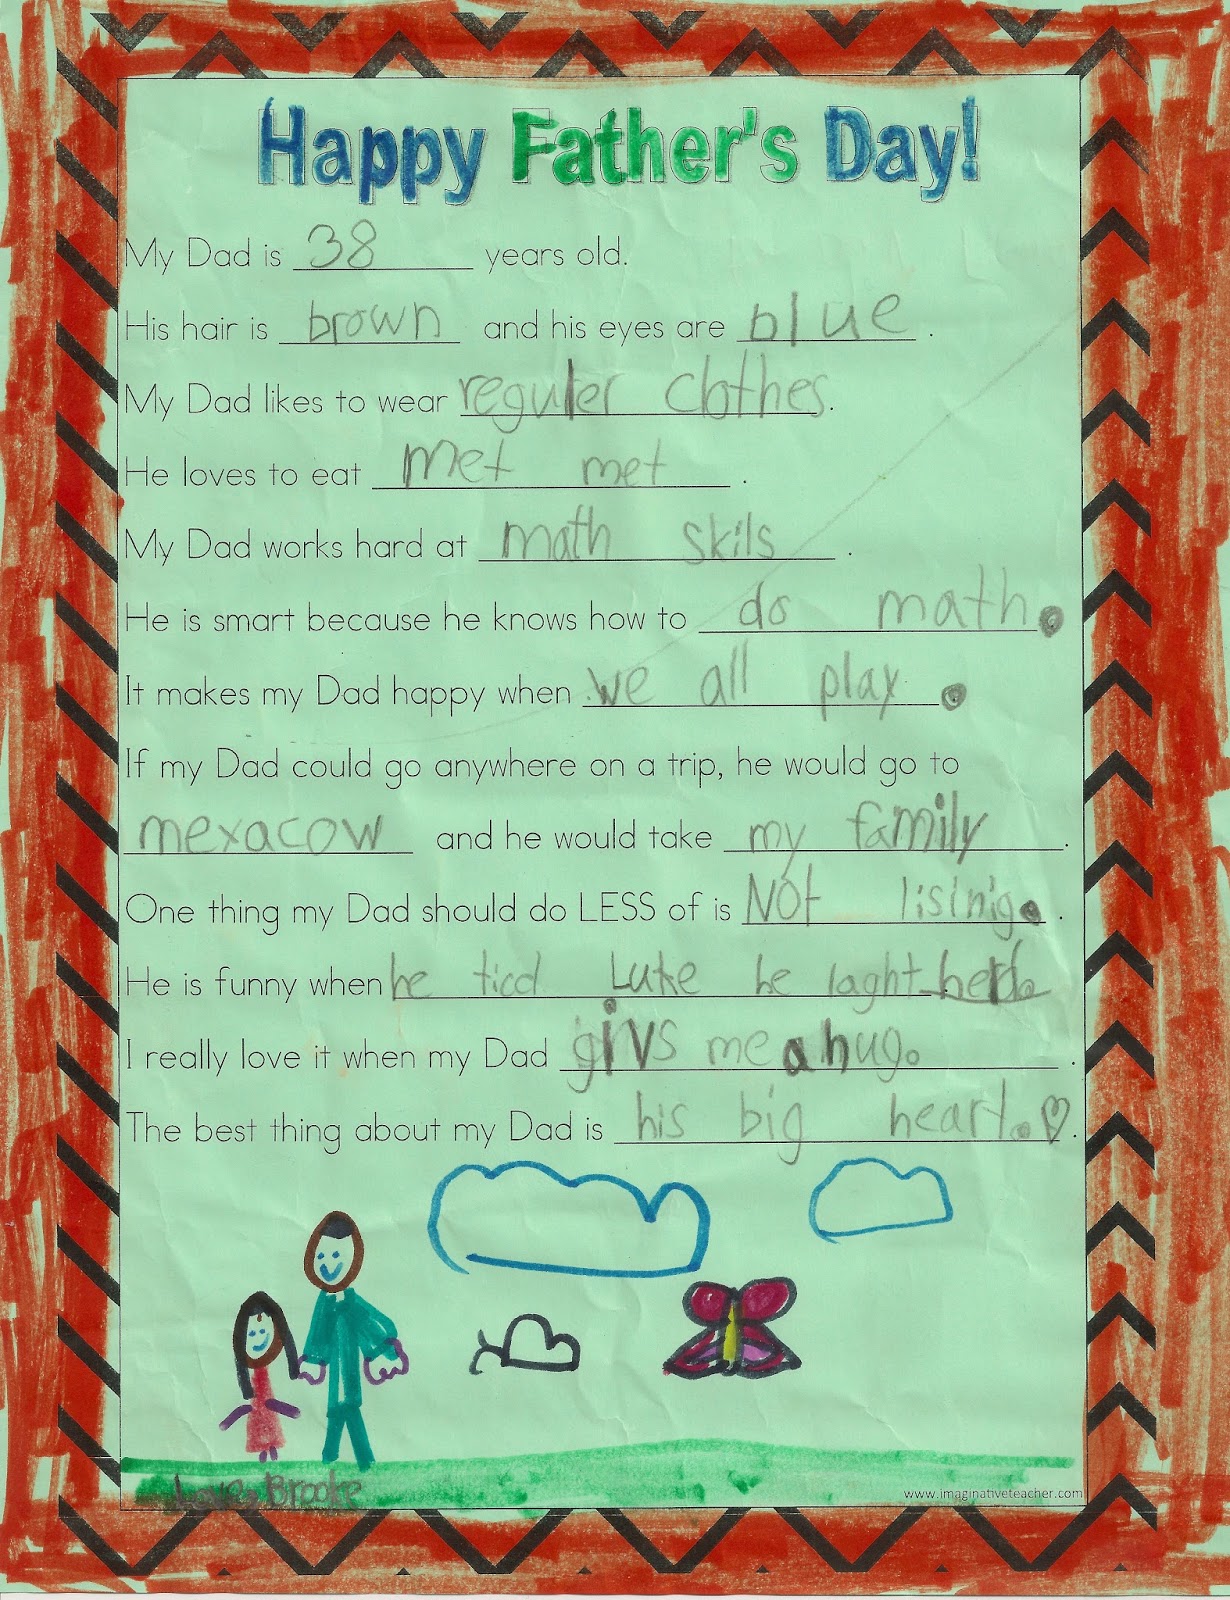 Happy Father's Day!
My Dad is 38 years old.
His hair is brown and his eyes are blue.
My Dad likes to wear reguler clothes.
He loves to eat met met.
My Dad works hard at math skils.
He is smart because he knows how to do math.
It makes my Dad happy when we all play.
If my Dad could go anywhere on a trip, he would go to
mexacow and he would take my family.
One thing my Dad should do LESS of is Not lisinig.
He is funny when he ticd Luke he laght herd.
I really love it when my Dad givs me a hug.
The best thing about my Dad is his big heart.
Love, Brooke
www.imaginativeteacher.com